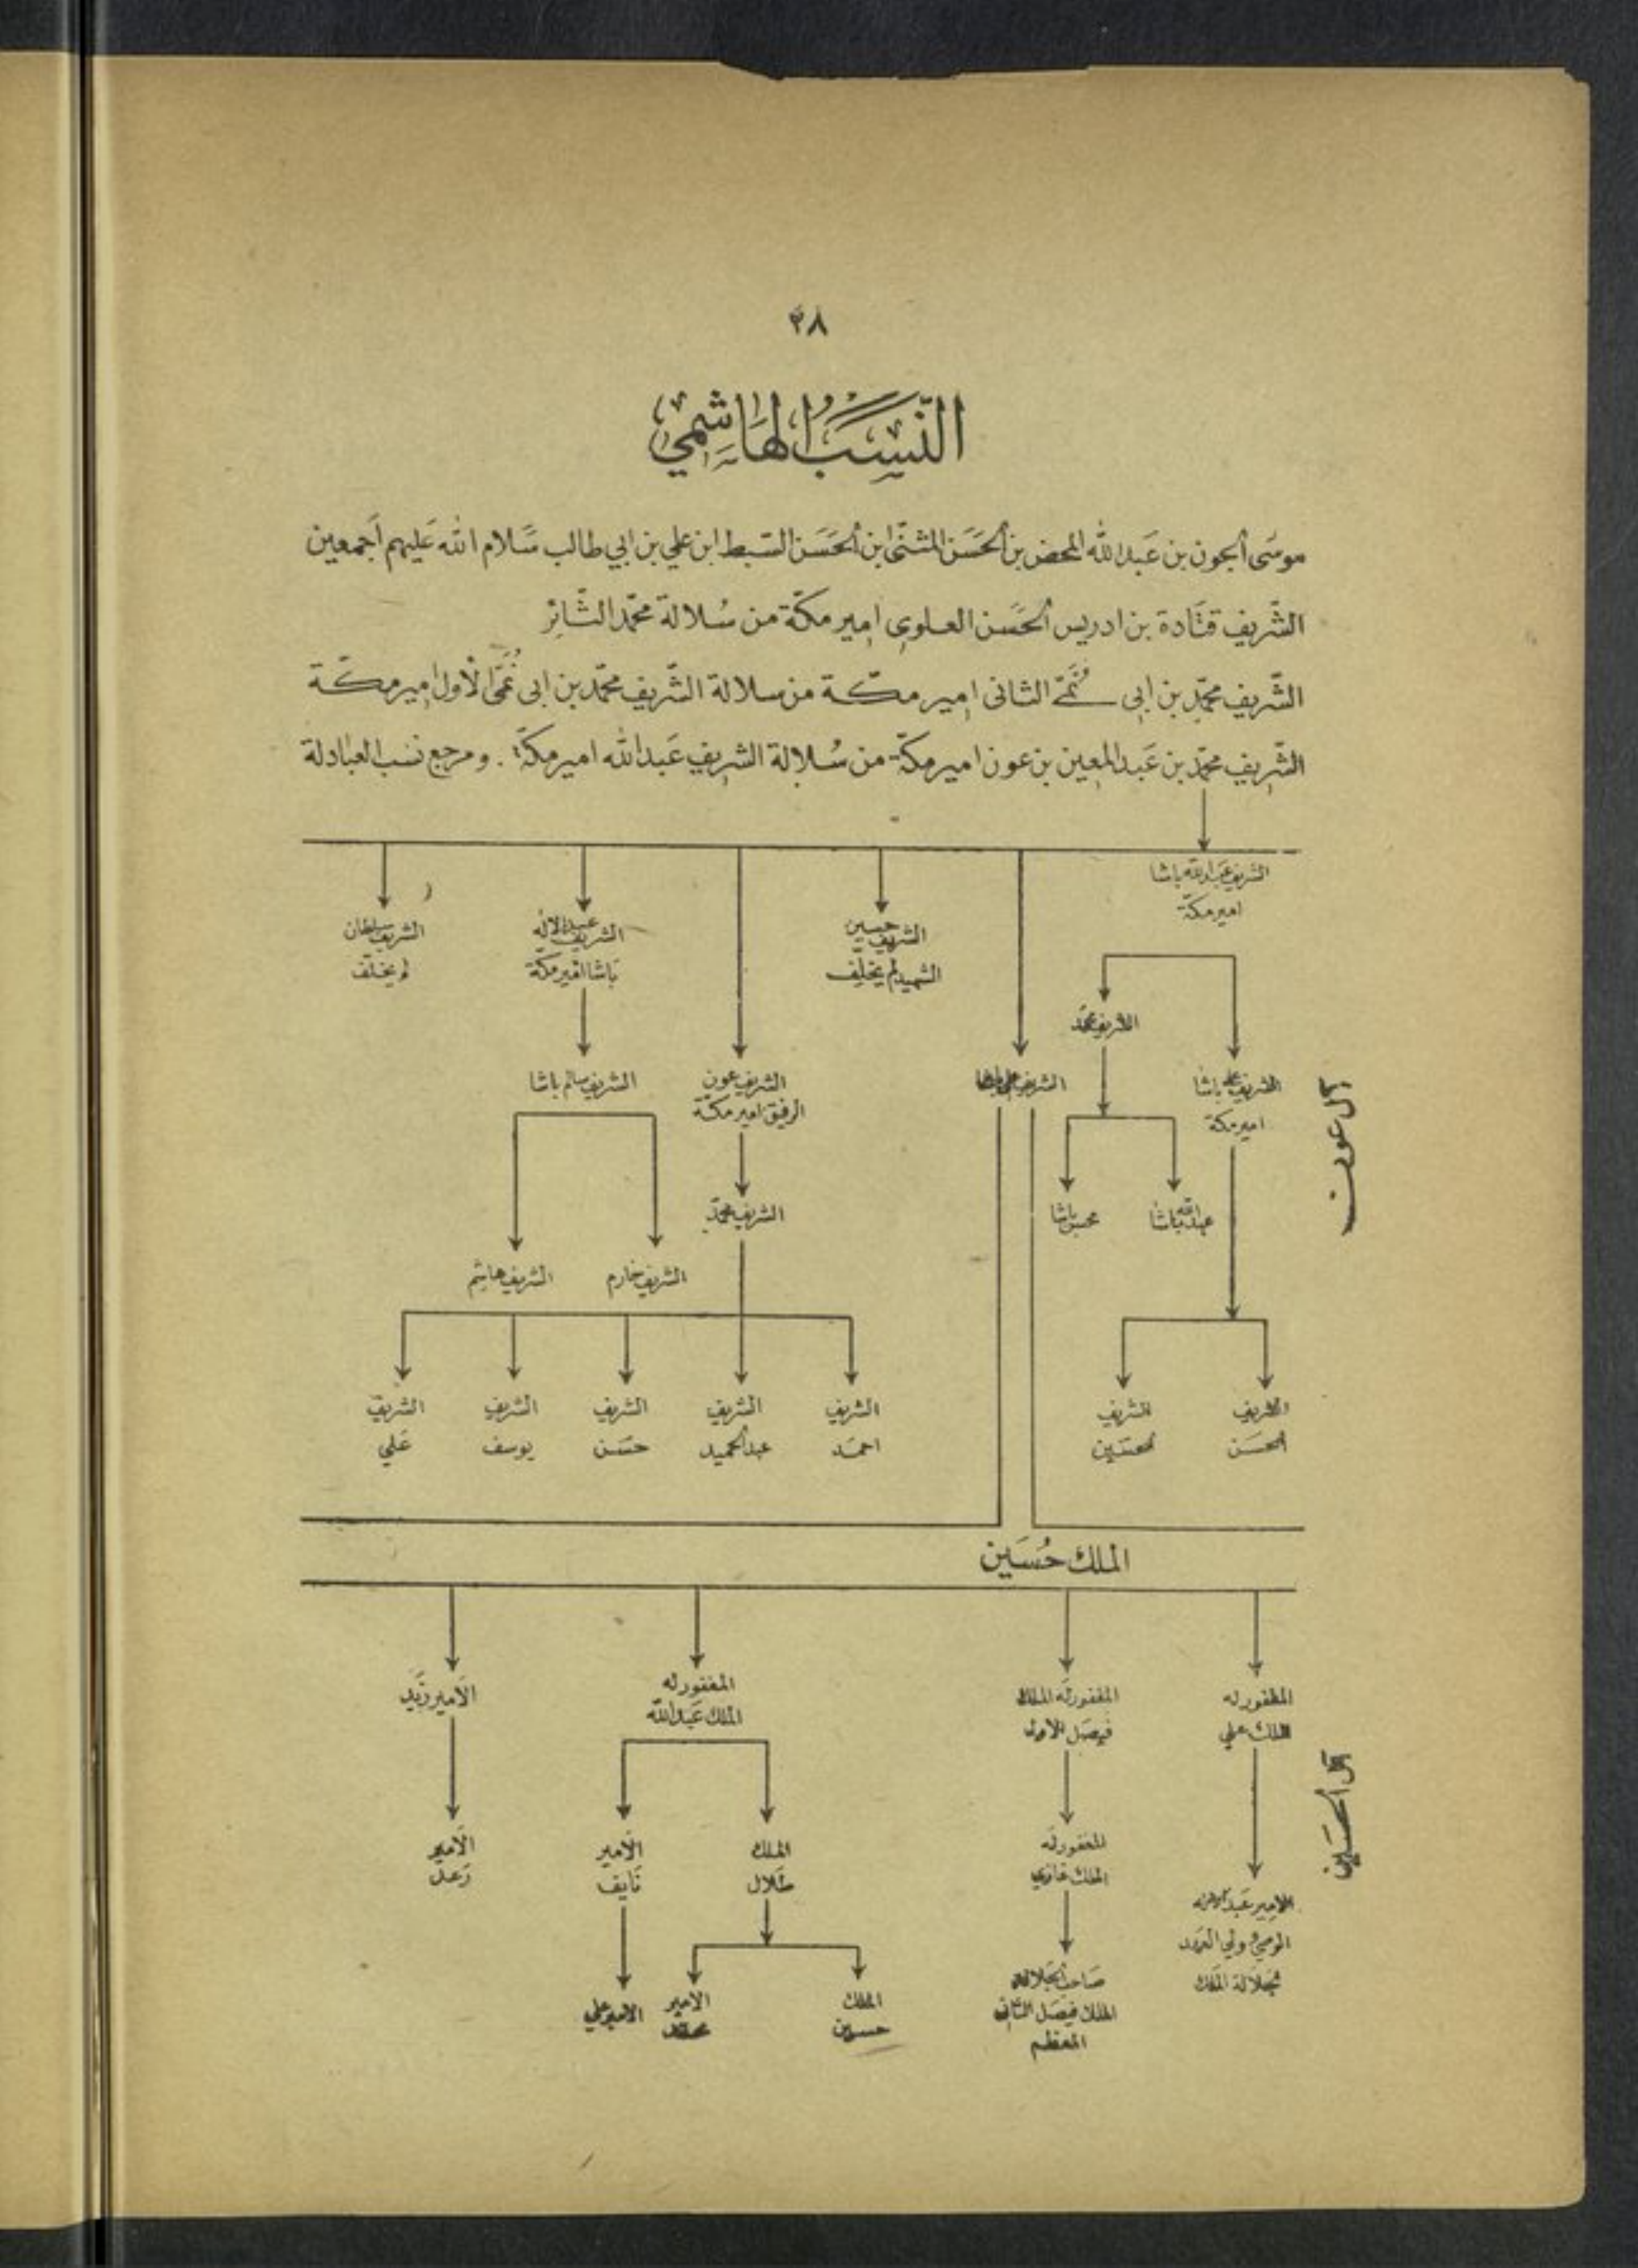 ٣٨
النَّسَبُ الهَاشِمِي
موسَى الجون بن عَبدالله المحض بن الحَسَن المثنّى ابن الحَسَن السّبط ابن علي بن ابي طالب سَلام الله عَليهم اجمعين
الشّريف قتَادة بن ادريس الحَسَن العلوي امير مكّة من سُلالة محمّد الثَّائِر
الشّريف محمّد بن ابي نُمَيّ الثاني امير مكّة من سلالة الشّريف محمّد بن ابي نُمَيّ الأول امير مكّة
الشّريف محمّد بن عَبد المعين بن عون امير مكّة من سُلالة الشريف عَبدالله امير مكّة . ومرجع نسب العبادلة
الشريف عبدالله باشا
امير مكّة
الشريف حسين
الشهيد لم يخلّف
الشريف عبدالاله
باشا امير مكّة
الشريف سلطان
لم يخلّف
آل عون
الشريف محمّد
الشريف علي باشا
امير مكة
الشريف علي باشا
الشريف عون
الرفيق امير مكّة
الشريف سالم باشا
عبدالله باشا
محسن باشا
الشريف محمّد
الشريف هاشم
الشريف
الحسَن
الشريف
الحسَين
الشريف
احمَد
الشريف
عبدالحميد
الشريف
حسَن
الشريف
يوسف
الشريف
عَلي
الملك حُسَين
آل الحسَين
المغفور له
الملك علي
المغفور له الملك
فيصَل الاول
المغفور له
الملك عَبدالله
الأمير زَيد
الامير عَبد الاله
الوصي وولي العهد
لجلالة الملك
المغفور له
الملك غازي
الملك
طَلال
الأمير
نَايف
الأمير
رَعد
صَاحب الجَلالة
الملك فيصَل الثاني
المعظم
الملك
حسين
الأمير
محمّد
الامير علي